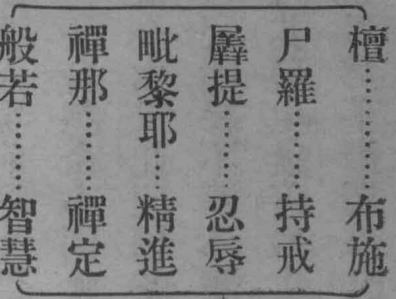 檀………布施
尸羅………持戒
羼提………忍辱
毗黎耶…精進
禪那………禪定
般若………智慧